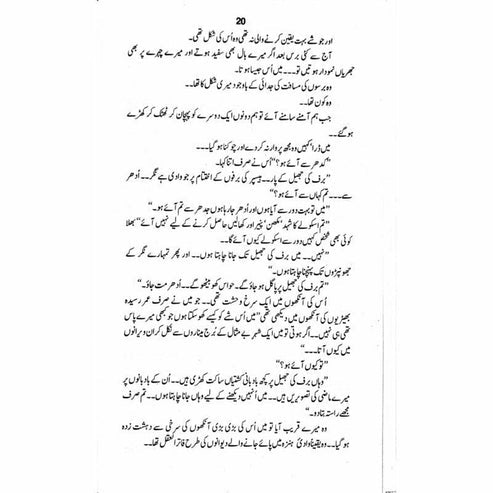 20
اور جو شے بہت یقین کرنے والی نہ تھی وہ اُس کی شکل تھی۔
آج سے کئی برس بعد اگر میرے بال بھی سفید ہوتے اور میرے چہرے پر بھی
جھریاں نمودار ہوتیں تو۔۔۔ میں اُس جیسا ہوتا۔
وہ برسوں کی مسافت کی جدائی کے باوجود میری شکل کا تھا۔۔
وہ کون تھا۔
جب ہم آمنے سامنے آئے تو ہم دونوں ایک دوسرے کو پہچان کر ٹھٹک کر کھڑے
ہو گئے۔۔
میں ڈرا کہیں وہ مجھ پر وار نہ کر دے اور چوکنا ہو گیا۔۔۔
”کدھر سے آئے ہو؟“ اُس نے صرف اتنا کہا۔
”برف کی جھیل کے پار۔۔ ہیسپر کی برفوں کے اختتام پر جو وادی ہے نگر۔۔ اُدھر
سے۔۔۔ تم کہاں سے آئے ہو؟“
”میں تو بہت دور سے آیا ہوں اور اُدھر جا رہا ہوں جدھر سے تم آئے ہو۔“
”تم اسکولے کا شہد، مکھن، پنیر اور کھالیں حاصل کرنے کے لیے نہیں آئے“ بھلا
کوئی بھی شخص کہیں دور سے اسکولے کیوں آئے گا۔۔
”نہیں۔۔ میں برف کی جھیل تک جانا چاہتا ہوں۔۔ اور پھر تمہارے نگر کے
جھونپڑوں تک پہنچنا چاہتا ہوں۔“
”تم برف کی جھیل پر پاگل ہو جاؤ گے۔ حواس کھو بیٹھو گے۔۔ اُدھر مت جاؤ۔“
اُس کی آنکھوں میں ایک سرخ وحشت تھی۔۔ جو میں نے صرف عمر رسیدہ
بھیڑیوں کی آنکھوں میں دیکھی تھی ”میں اُس شے کو کیسے کھو سکتا ہوں جو کبھی میرے پاس
تھی ہی نہیں۔۔ اگر ہوتی تو میں ایک شہر بے مثال کے بُرج میناروں سے نکل کر ان ویرانوں
میں کیوں آتا۔۔۔“
”تو کیوں آئے ہو؟“
”وہاں برف کی جھیل پر کچھ بادبانی کشتیاں ساکت کھڑی ہیں۔۔ اُن کے بادبانوں پر
میرے ماضی کی تصویریں ہیں۔۔ میں اُنہیں دیکھنے کے لیے وہاں جانا چاہتا ہوں۔۔ تم صرف
مجھے راستہ بتا دو۔“
وہ میرے قریب آیا تو میں اُس کی بڑی بڑی آنکھوں کی سرخی سے دہشت زدہ
ہو گیا۔۔ وہ یقیناً وادیٔ ہنزہ میں پائے جانے والے دیوانوں کی طرح فاتر العقل تھا۔۔